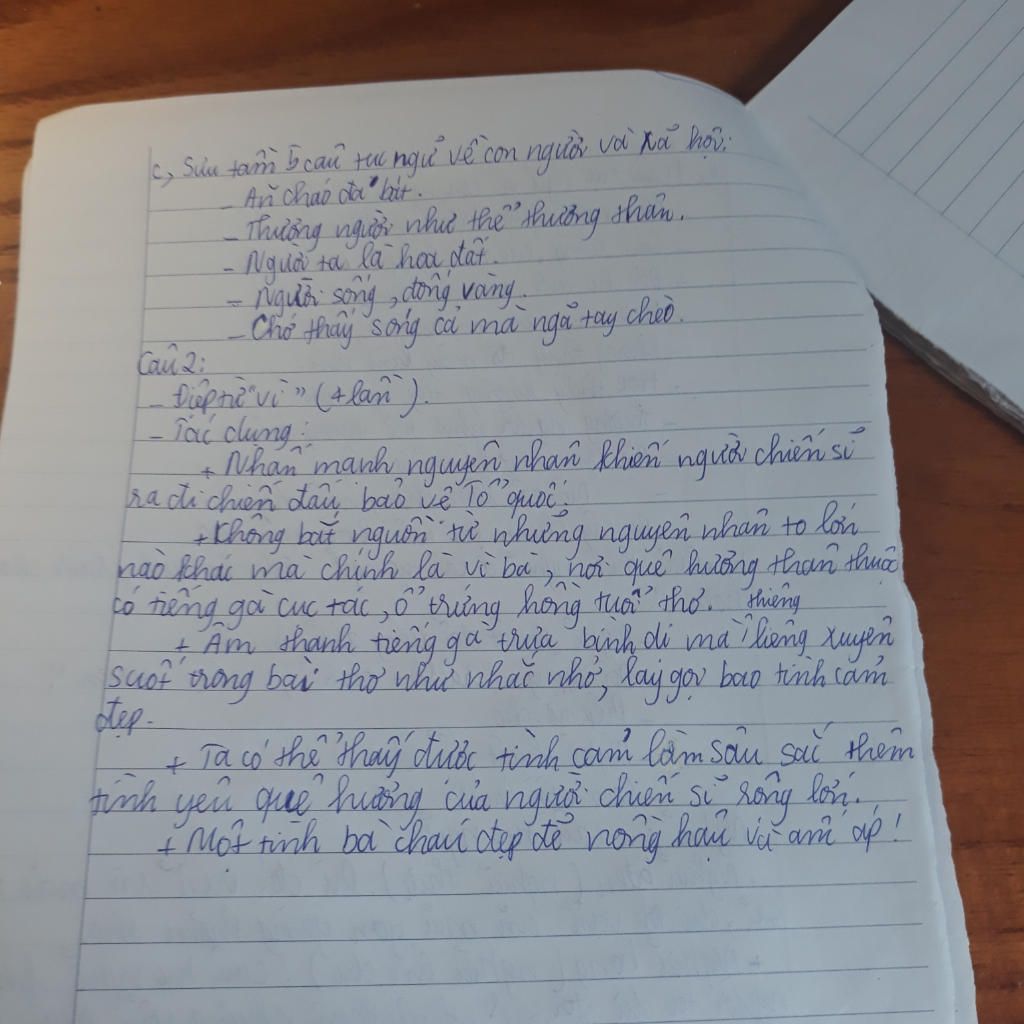 c, Sưu tầm 5 câu tục ngữ về con người và xã hội:
- Ăn cháo đá bát.
- Thương người như thể thương thân.
- Người ta là hoa đất.
- Người sống, đống vàng.
- Chớ thấy sóng cả mà ngã tay chèo.
Câu 2:
- Điệp từ "vì" (4 lần).
- Tác dụng:
+ Nhấn mạnh nguyên nhân khiến người chiến sĩ
ra đi chiến đấu bảo vệ Tổ quốc.
+ Không bắt nguồn từ những nguyên nhân to lớn
nào khác mà chính là vì bà, nơi quê hương thân thuộc
có tiếng gà cục tác, ổ trứng hồng tuổi thơ.
thiêng
+ Âm thanh tiếng gà trưa bình dị mà liêng xuyên
suốt trong bài thơ như nhắc nhở, lay gọi bao tình cảm
đẹp.
+ Ta có thể thấy được tình cảm làm sâu sắc thêm
tình yêu quê hương của người chiến sĩ rộng lớn.
+ Một tình bà cháu đẹp đẽ nồng hậu và ấm áp!